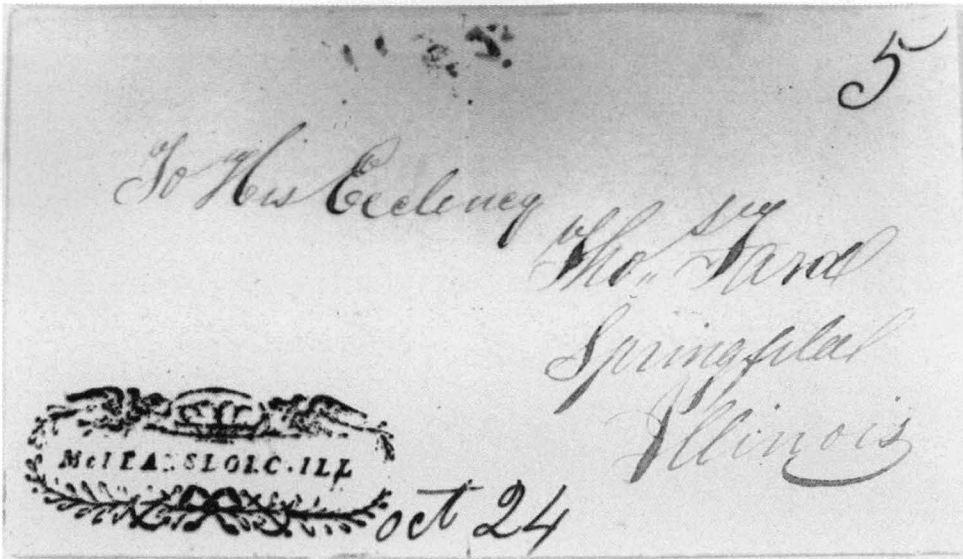 5
To His Ecclency
Thos Ford
Springfield
Illinois
McLEANSBORO. ILL
oct 24